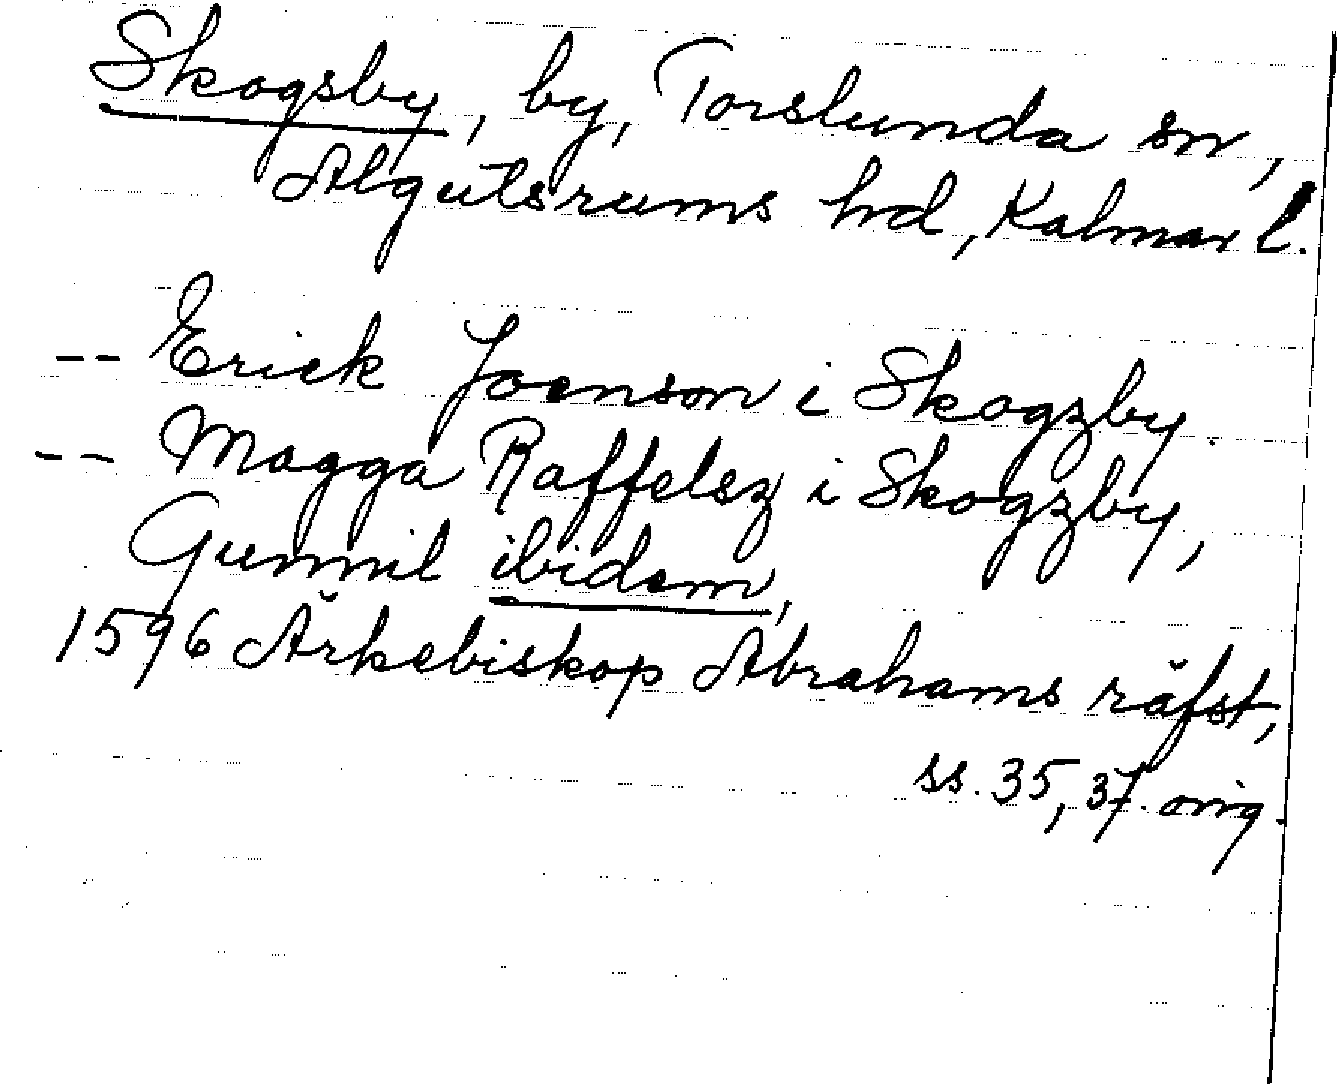 Skogsby, by, Torslunda sn,
Algutsrums hd, Kalmar l.
-- Erick Joenson i Skogzby.
-- Magga Raffelsz i Skogzby,
Gunnil ibidem,
1596 Ärkebiskop Abrahams räfst,
ss. 35, 37. orig.